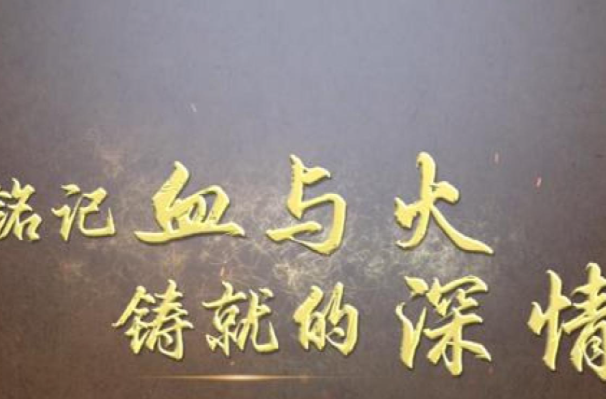 铭记血与火
铸就的深情